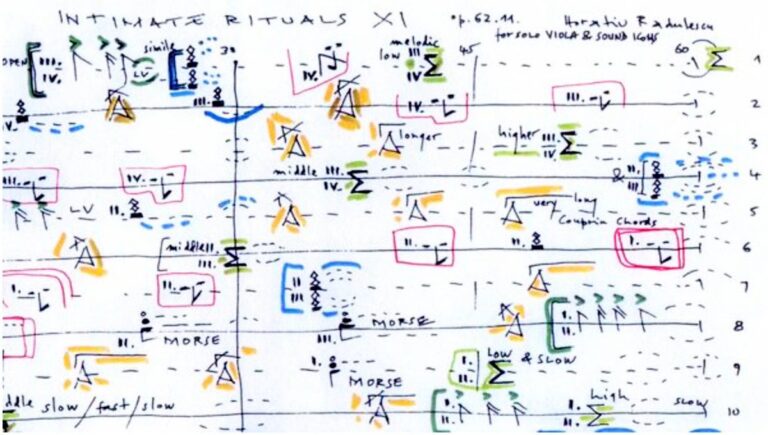 INTIMATE RITUALS XI op. 62.11. Horatiu Radulescu
for SOLO VIOLA & SOUND ICONS
OPEN III. IV. LV simile 30 IV. melodic low 45 60 1
IV. III. IV. III. 2
longer higher III. IV. 3
III. IV. middle III. IV. & II. III. 4
LV II. very long 5
Couprin chords
middle II. III. II. II. I. 6
I. II. II. III. 7
III. MORSE III. MORSE I. II. 8
I. MORSE I. II. LOW & SLOW 9
ddle slow/fast/slow I. II. II. high SLOW 10